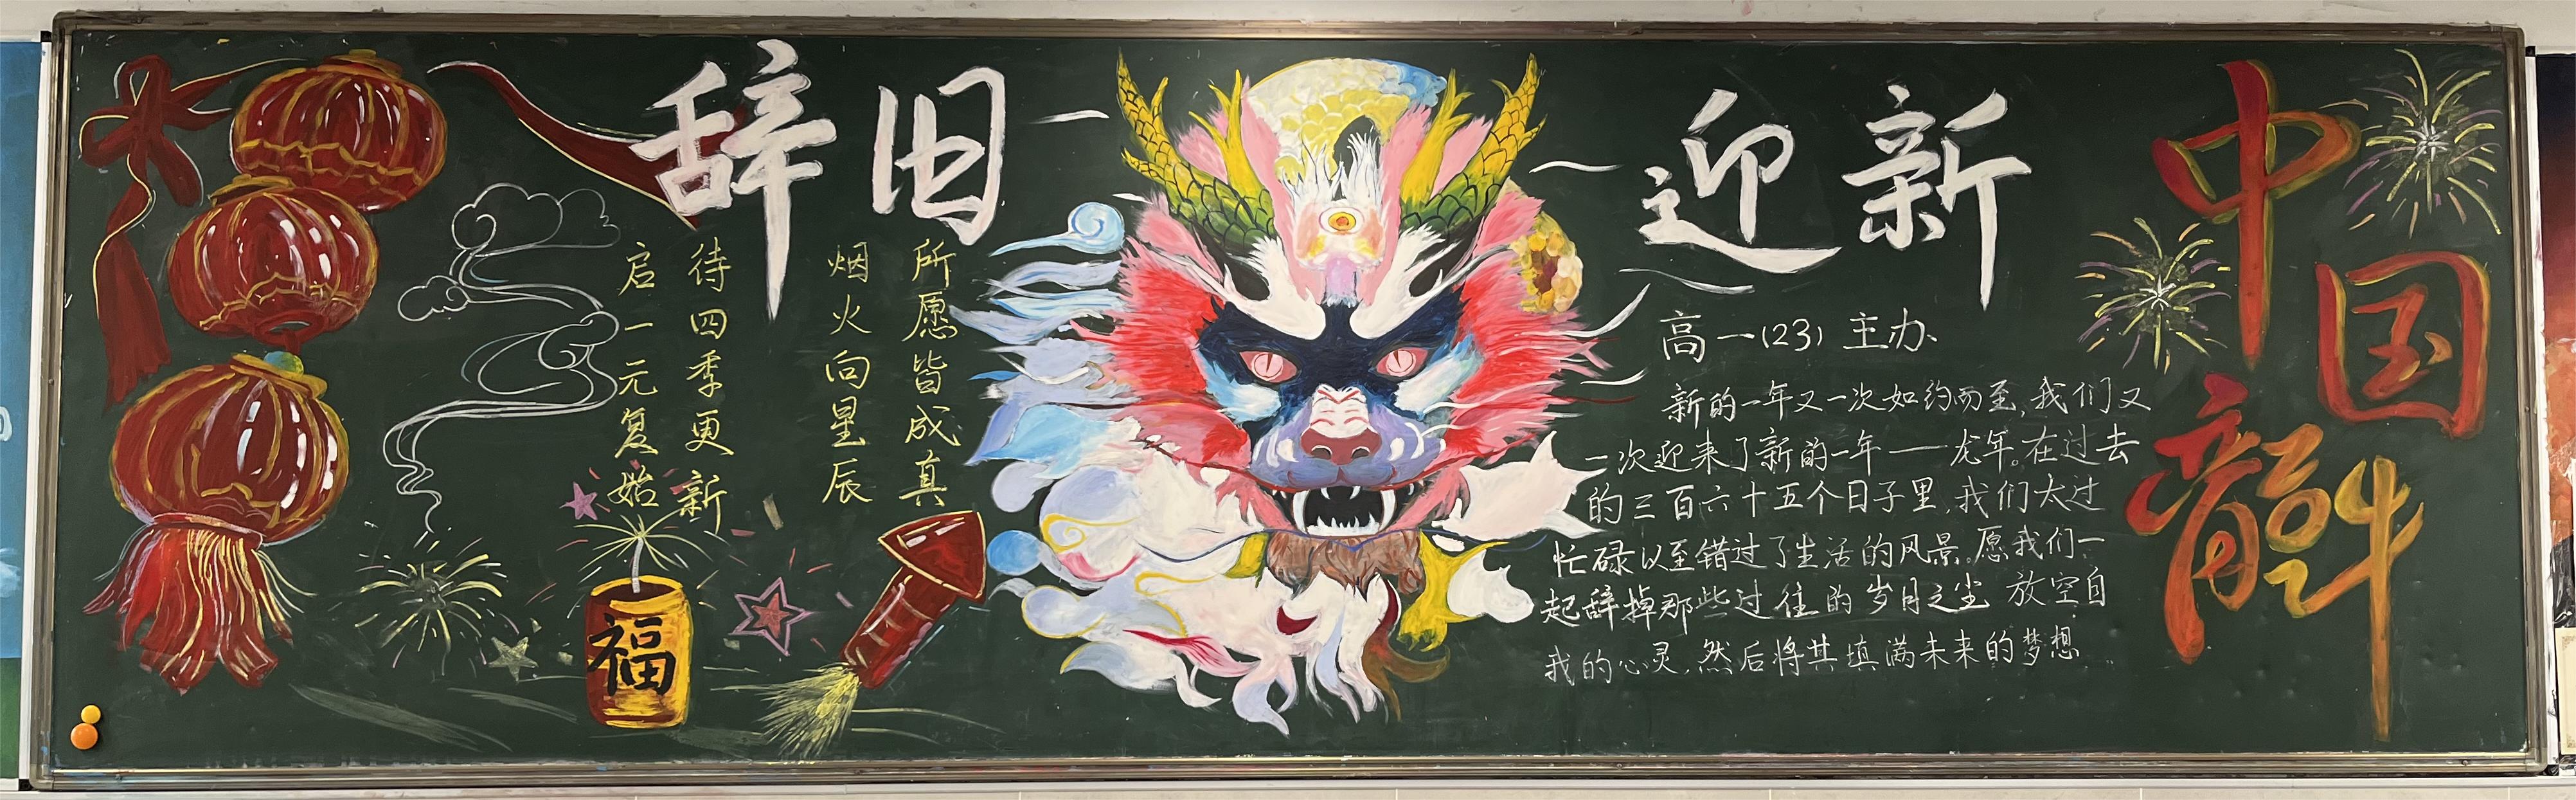 辞旧
迎新
中国龍
所愿皆成真
烟火向星辰
待四季更新
启一元复始
福
高一(23)主办
新的一年又一次如约而至,我们又
一次迎来了新的一年——龙年。在过去
的三百六十五个日子里,我们太过
忙碌以至错过了生活的风景。愿我们一
起辞掉那些过往的岁月之尘 放空自
我的心灵,然后将其填满未来的梦想